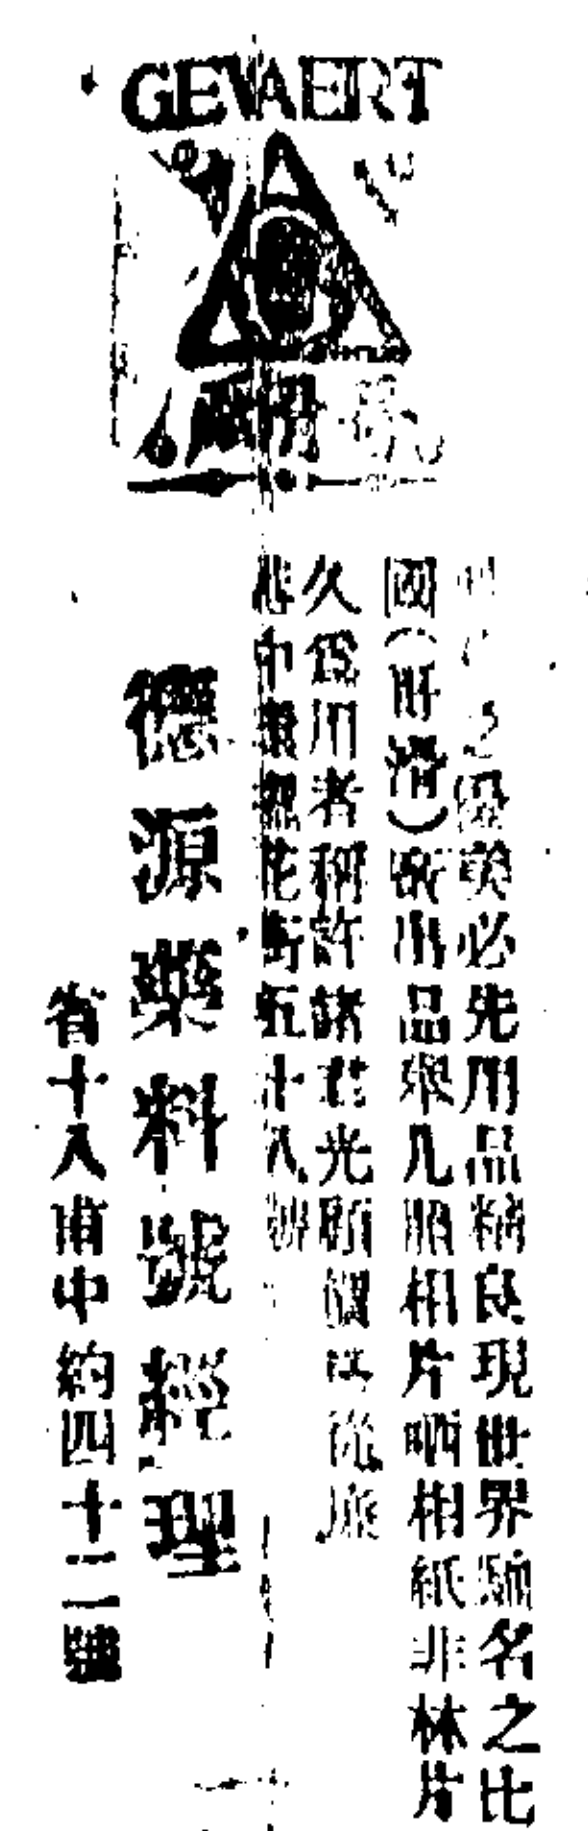 GEVAERT
之優美必先用品精良現世界馳名之比
國(肝滑)廠出品舉凡照相片晒相紙非林片
久爲用者稱許諸君光顧價從廉
港中環花街五十八號
德源藥料號經理
省十八甫中約四十二號